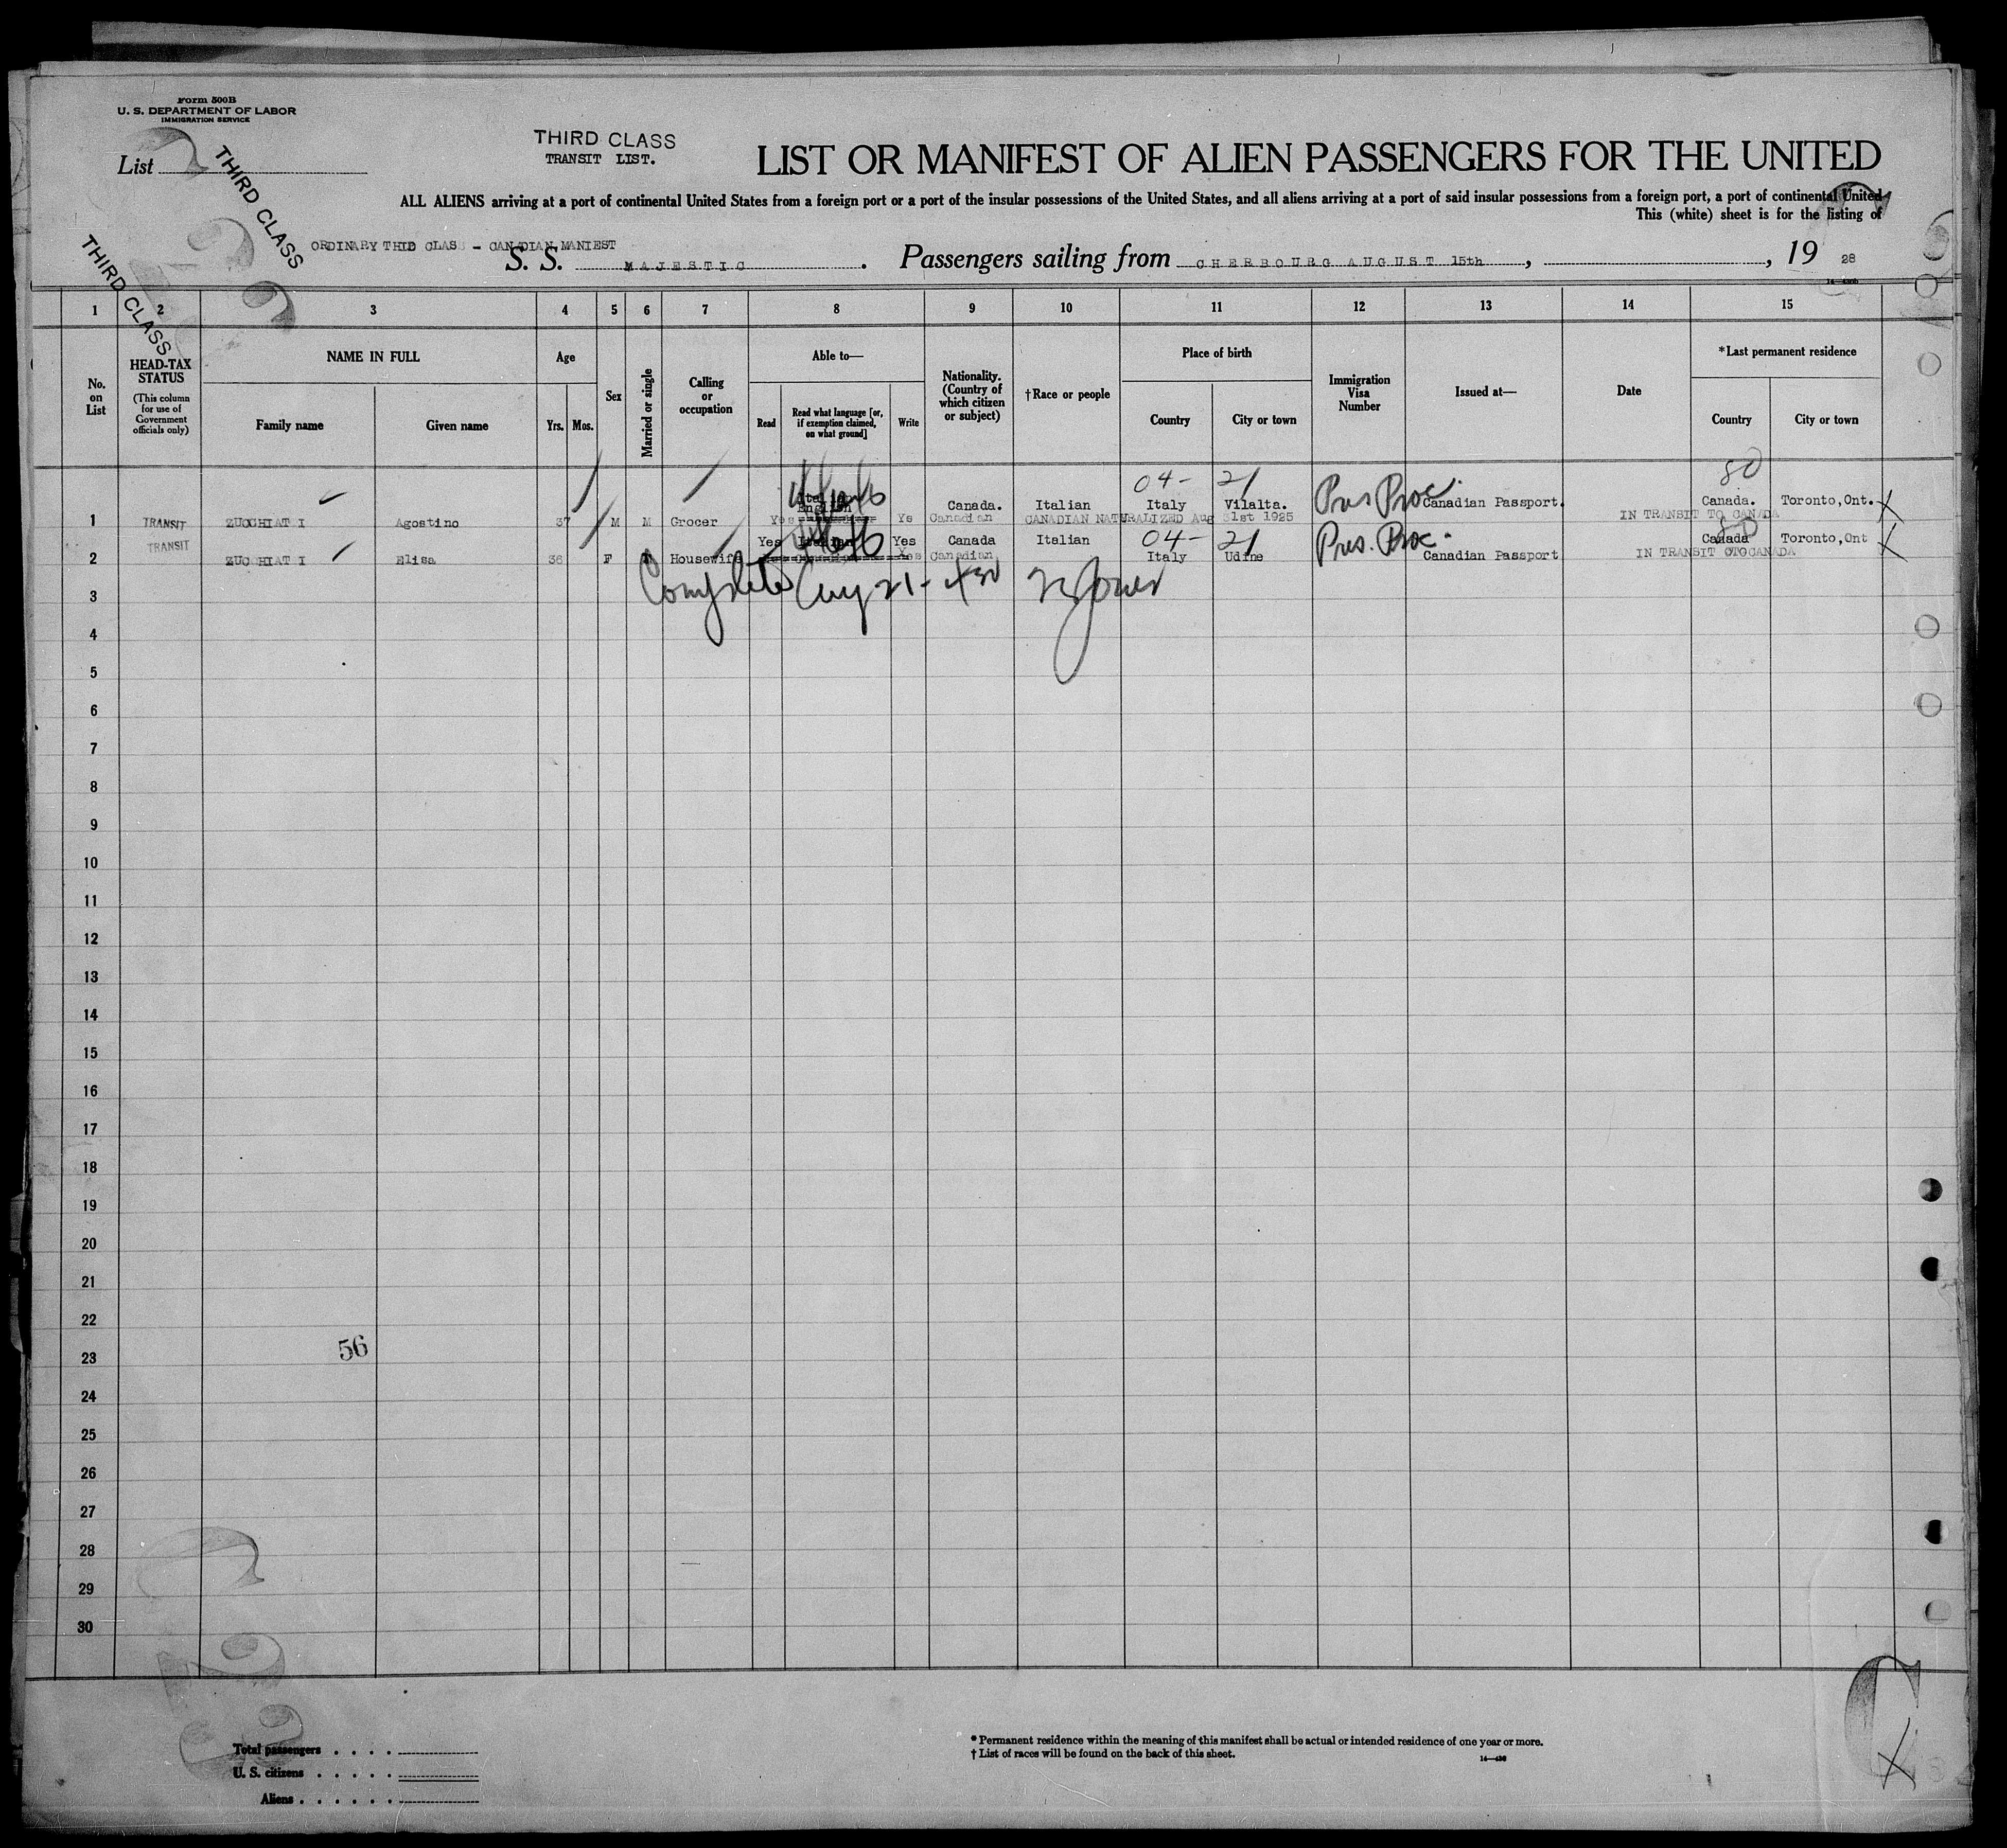 Form 500B
U. S. DEPARTMENT OF LABOR
IMMIGRATION SERVICE
List
THIRD CLASS
THIRD CLASS
THIRD CLASS
TRANSIT LIST.
LIST OR MANIFEST OF ALIEN PASSENGERS FOR THE UNITED
ALL ALIENS arriving at a port of continental United States from a foreign port or a port of the insular possessions of the United States, and all aliens arriving at a port of said insular possessions from a foreign port, a port of continental United
This (white) sheet is for the listing of
ORDINARY THID CLASS - CANADIAN MANIEST
S. S. MAJESTIC. Passengers sailing from CHERBOURG AUGUST 15th, , 19 28
1 2 3 4 5 6 7 8 9 10 11 12 13 14 15
No. on List
HEAD-TAX STATUS
(This column for use of Government officials only)
NAME IN FULL
Family name Given name
Age
Yrs. Mos.
Sex
Married or single
Calling or occupation
Able to—
Read
Read what language [or, if exemption claimed, on what ground]
Write
Nationality. (Country of which citizen or subject)
†Race or people
Place of birth
Country City or town
Immigration Visa Number
Issued at—
Date
*Last permanent residence
Country City or town
04- 21 80
Italian Canada. Italian Italy Vilalta. Pres Proc. Canadian Passport. Canada. Toronto,Ont. X
English
1 TRANSIT ZUCCHIATI Agostino 37 M M Grocer Yes Ye Canadian CANADIAN NATURALIZED Aug 31st 1925 IN TRANSIT TO CANADA
TRANSIT Yes Italian Yes Canada Italian 04- 21 Pres. Proc. 80 Canada Toronto,Ont X
2 ZUCCHIATI Elisa 36 F Housewife Yes Canadian Italy Udine Canadian Passport IN TRANSIT TO CANADA
Complete Aug 21-
3
4
5
6
7
8
9
10
11
12
13
14
15
16
17
18
19
20
21
22
56
23
24
25
26
27
28
29
30
Total passengers . . . .
U. S. citizens . . . . .
Aliens . . . . . .
* Permanent residence within the meaning of this manifest shall be actual or intended residence of one year or more.
† List of races will be found on the back of this sheet.
14—430
C
X